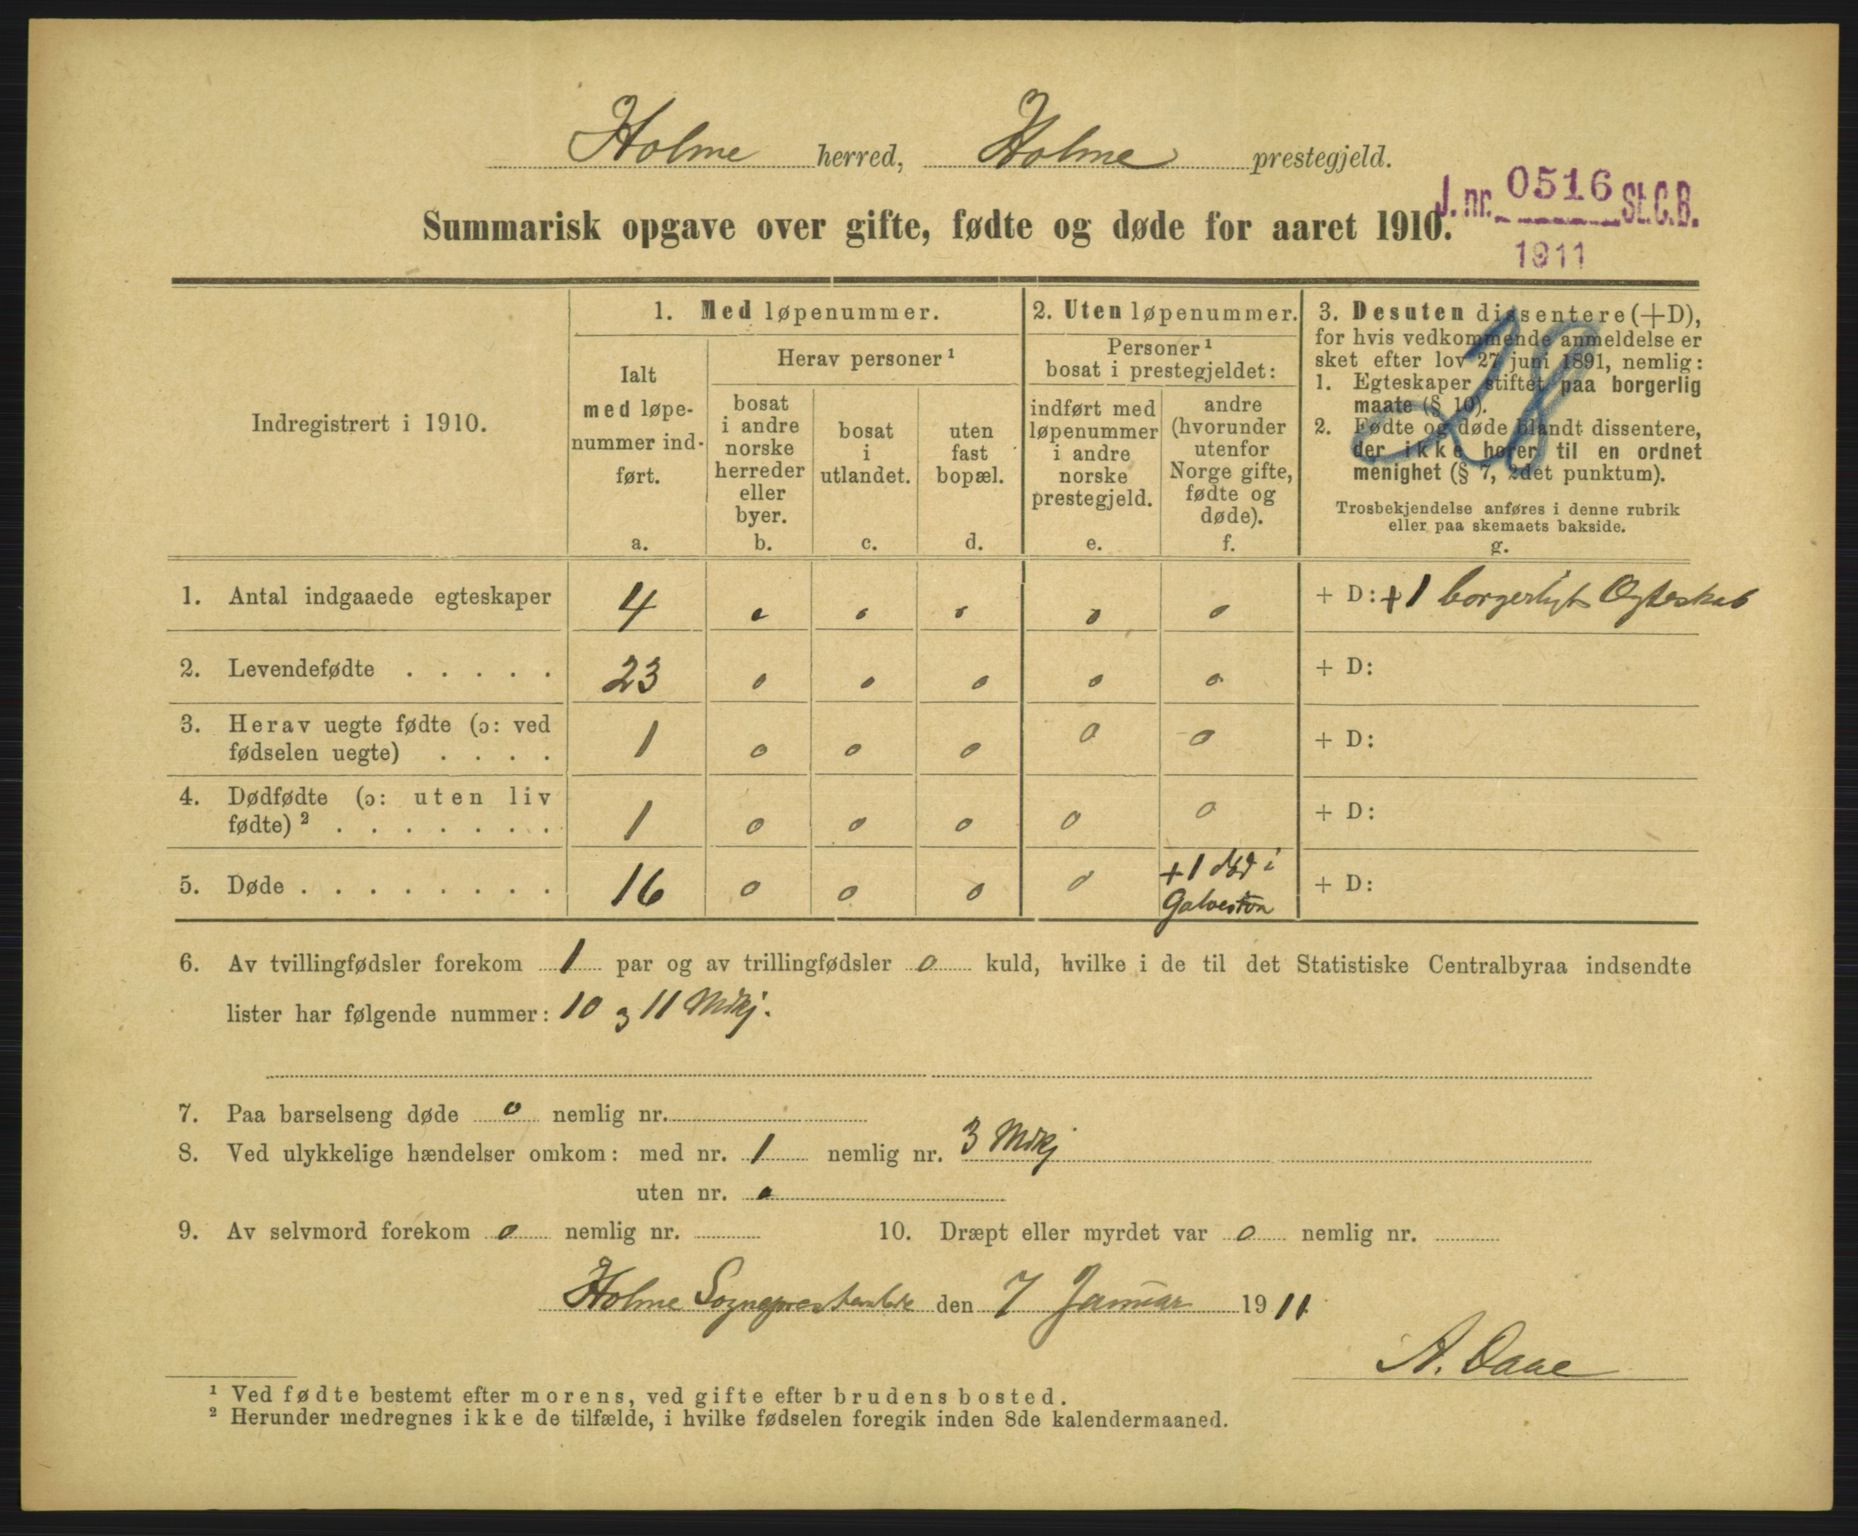 Holme herred, Holme prestegjeld.
J. nr. 0516 St.C.B.
1911
Summarisk opgave over gifte, fødte og døde for aaret 1910.
Indregistrert i 1910.
1. Med løpenummer.
Ialt
med løpe-
nummer ind-
ført.
a.
Herav personer¹
bosat
i andre
norske
herreder
eller
byer.
b.
bosat
i
utlandet.
c.
uten
fast
bopæl.
d.
2. Uten løpenummer.
Personer¹
bosat i prestegjeldet:
indført med
løpenummer
i andre
norske
prestegjeld.
e.
andre
(hvorunder
utenfor
Norge gifte,
fødte og
døde).
f.
3. Desuten dissentere (+D),
for hvis vedkommende anmeldelse er
sket efter lov 27 juni 1891, nemlig:
1. Egteskaper stiftet paa borgerlig
maate (§ 10).
2. Fødte og døde blandt dissentere,
der ikke hører til en ordnet
menighet (§ 7, 2det punktum).
Trosbekjendelse anføres i denne rubrik
eller paa skemaets bakside.
g.
1. Antal indgaaede egteskaper 4 0 0 0 0 0 + D: +1 borgerligt Egteskab
2. Levendefødte . . . . . 23 0 0 0 0 0 + D:
3. Herav uegte fødte (ɔ: ved
fødselen uegte) . . . . 1 0 0 0 0 0 + D:
4. Dødfødte (ɔ: uten liv
fødte)² . . . . . . . 1 0 0 0 0 0 + D:
5. Døde . . . . . . . . 16 0 0 0 0 +1 død i + D:
Galveston
6. Av tvillingfødsler forekom 1 par og av trillingfødsler 0 kuld, hvilke i de til det Statistiske Centralbyraa indsendte
lister har følgende nummer: 10 og 11 Mdkj.
7. Paa barselseng døde 0 nemlig nr.
8. Ved ulykkelige hændelser omkom: med nr. 1 nemlig nr. 3 Mdkj
uten nr. 0
9. Av selvmord forekom 0 nemlig nr. 10. Dræpt eller myrdet var 0 nemlig nr.
Holme Sogneprestembede den 7 Januar 1911
A. Daae
¹ Ved fødte bestemt efter morens, ved gifte efter brudens bosted.
² Herunder medregnes ikke de tilfælde, i hvilke fødselen foregik inden 8de kalendermaaned.